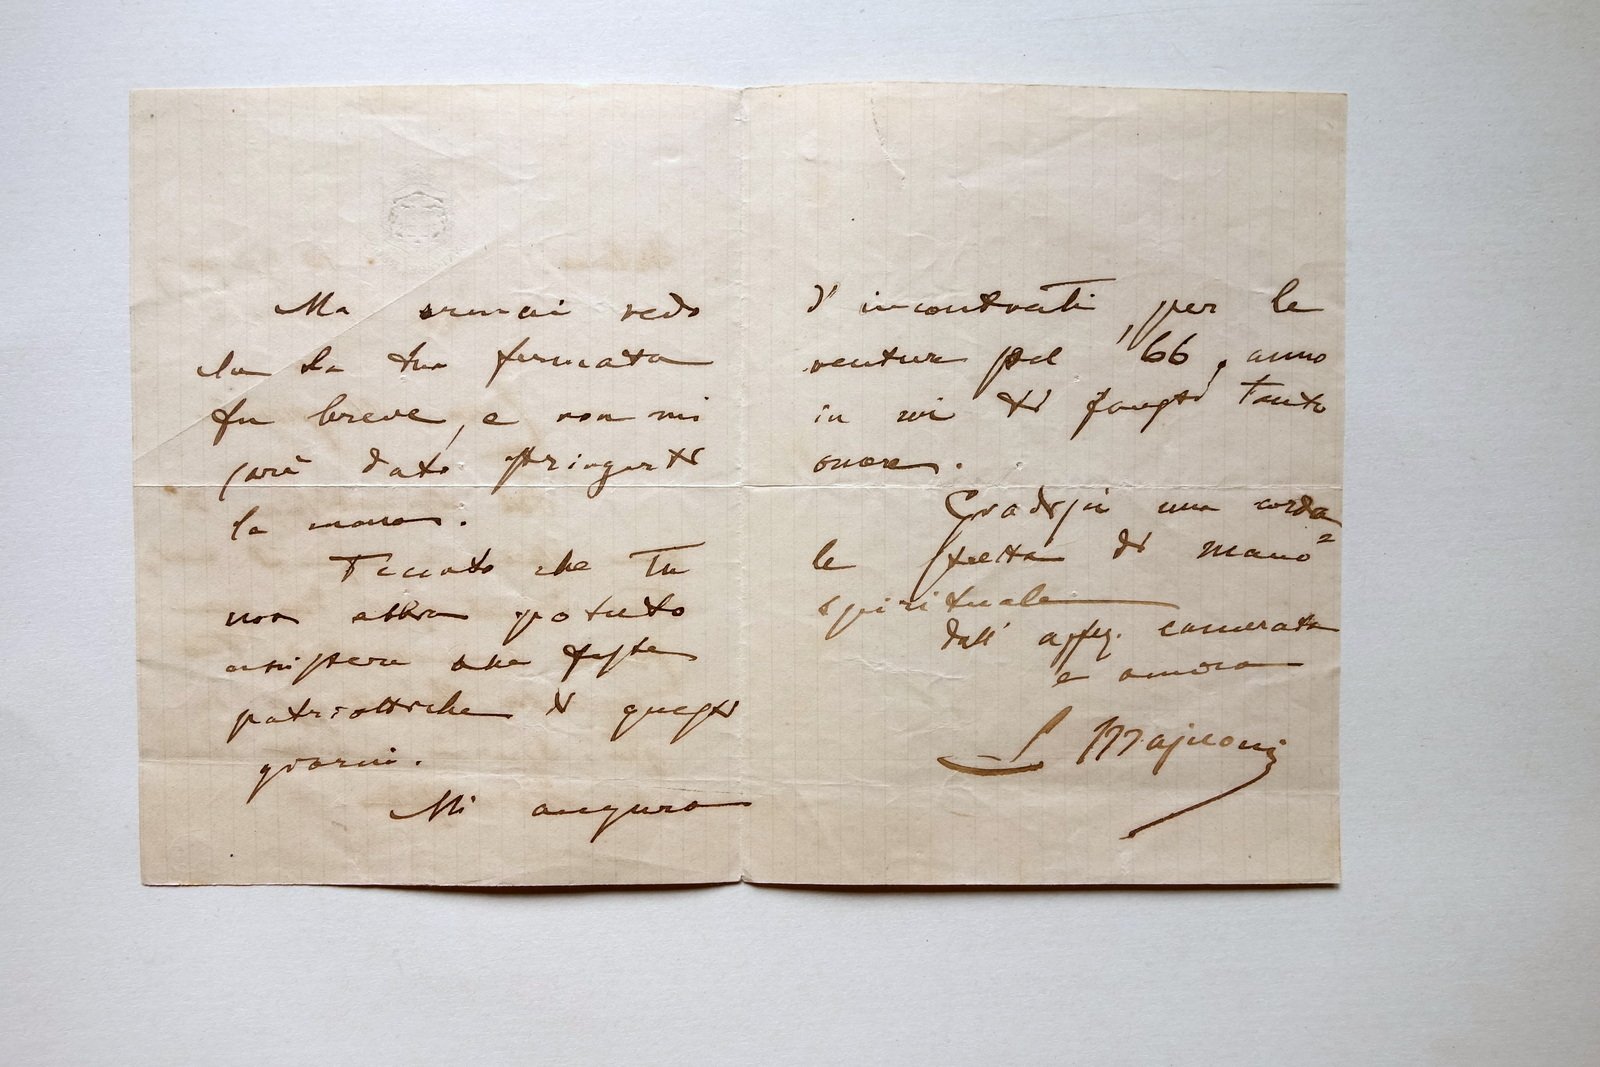 Ma ormai vedo
che la tua fermata
fu breve, e non mi
sarà dato stringerti
la mano.
Peccato che Tu
non abbia potuto
assistere alle feste
patriottiche di questi
giorni.
Mi auguro
d'incontrarti, per le
venture pel '66, anno
in cui ti fanno tanto
onore.
Gradisci una cordia
le stretta di mano
spirituale
dall' affez. camerata
e amico
L Majnoni